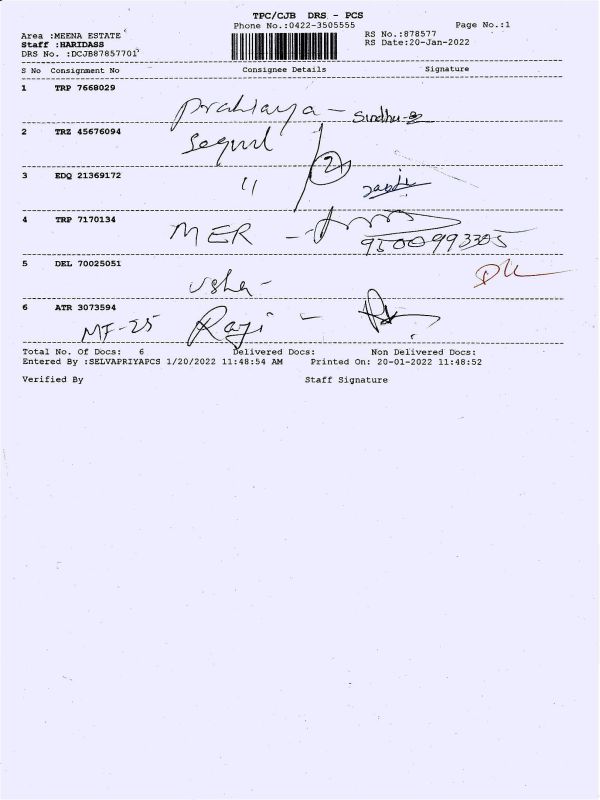 TPC/CJB DRS - PCS
Phone No.:0422-3505555 Page No.:1
Area :MEENA ESTATE RS No.:878577
Staff :HARIDASS RS Date:20-Jan-2022
DRS No. :DCJB87857701
S No Consignment No Consignee Details Signature
1 TRP 7668029
Sindhu
2 TRZ 45676094
2
3 EDQ 21369172
"
4 TRP 7170134
MER -
9500993305
5 DEL 70025051
Usha -
6 ATR 3073594
MF-25 Raji -
Total No. Of Docs: 6 Delivered Docs: Non Delivered Docs:
Entered By :SELVAPRIYAPCS 1/20/2022 11:48:54 AM Printed On: 20-01-2022 11:48:52
Verified By Staff Signature